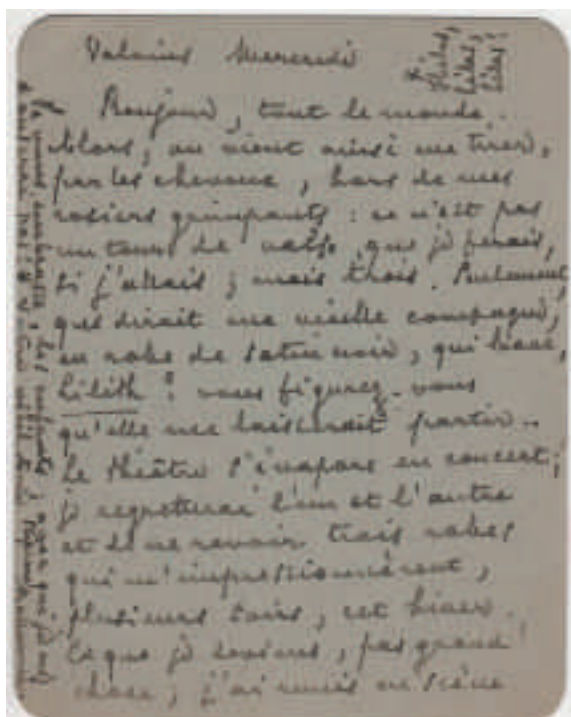 Valvins Mercredi
Lilith,
Lilith,
Lilith!
Bonjour, tout le monde.
Alors, on vient ainsi me tirer,
par les cheveux, hors de mes
rosiers grimpants : ce n'est pas
un tour de valse que je ferais,
si j'allais ; mais trois. Seulement,
que dirait ma vieille compagne,
en robe de satin noir, qui
Lilith ? vous figurez-vous
qu'elle me laisserait partir..
Le théâtre s'évapore en concert ;
je regretterai l'un et l'autre
et de ne revoir trois robes
qui m'impressionnèrent,
plusieurs soirs, cet hiver.
Ce que je deviens, pas grand'
chose ; j'ai remis en scène
Je vous embrasse, les enfants ;